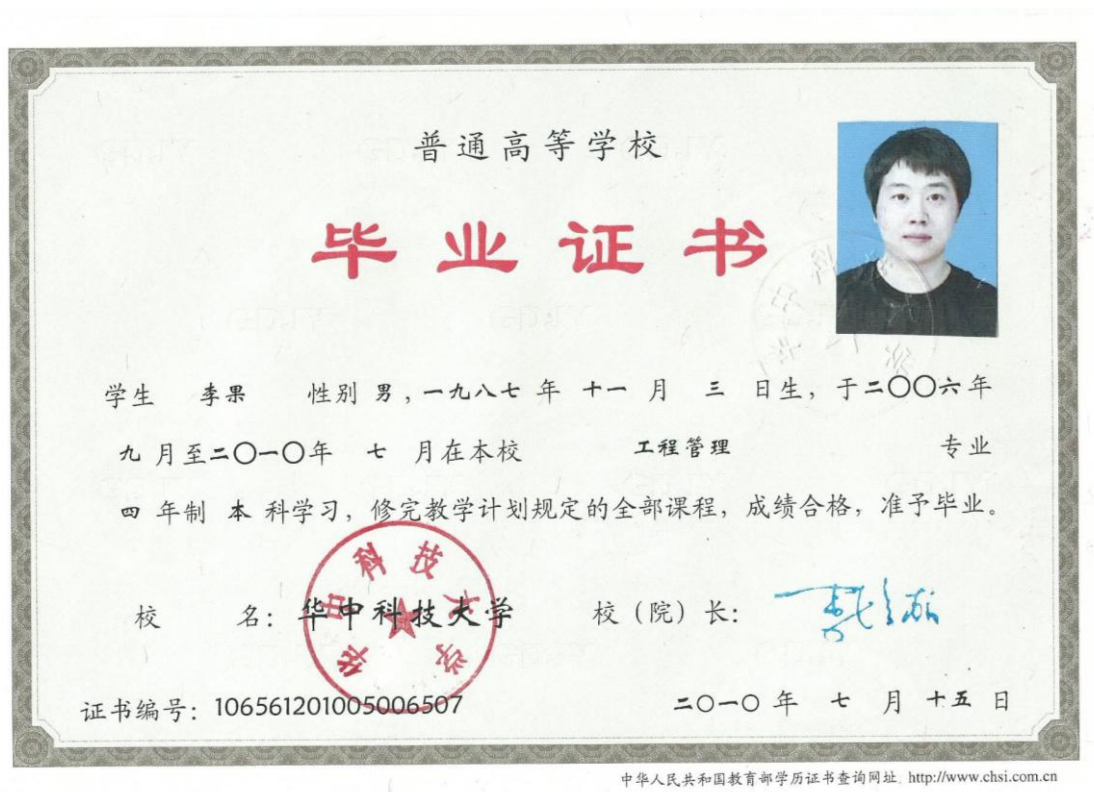 普通高等学校
毕业证书
学生 李果 性别 男，一九八七 年 十一 月 三 日生，于二〇〇六年
九 月至二〇一〇年 七 月在本校 工程管理 专业
四 年制 本 科学习，修完教学计划规定的全部课程，成绩合格，准予毕业。
校 名：华中科技大学 校（院）长：
华中科技大学
证书编号：106561201005006507 二〇一〇 年 七 月 十五 日
中华人民共和国教育部学历证书查询网址：http://www.chsi.com.cn